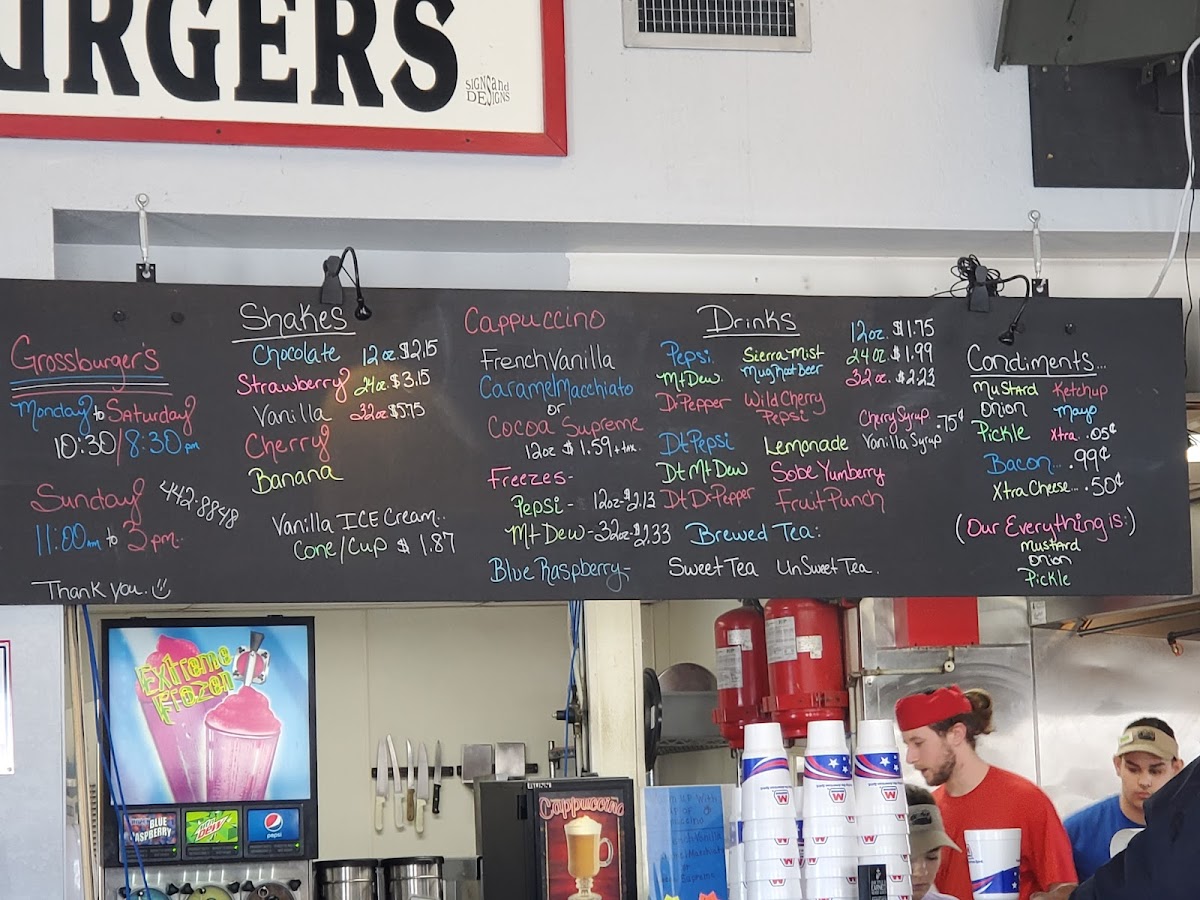 URGERS
SIGNS and
DESIGNS
Grossburger's
Monday to Saturday
10:30/8:30 pm
Sunday
442-8848
11:00 am to 3 pm.
Thank you.
Shakes
Chocolate 12 oz. $2.15
Strawberry 24 oz. $3.15
Vanilla 32 oz $5.75
Cherry
Banana
Vanilla ICE Cream..
Cone/Cup $1.87
Cappuccino
French Vanilla
Caramel Macchiato
or
Cocoa Supreme
12oz $1.59 + tax
Freezes-
Pepsi - 12oz-$2.13
Mt Dew - 32oz-$2.33
Blue Raspberry-
Drinks
12oz. $1.75
24 oz. $1.99
32 oz. $2.23
Pepsi Sierra Mist
Mt Dew. Mug Root Beer
Dr Pepper Wild Cherry
Pepsi
Dt Pepsi Lemonade
Dt Mt Dew Sobe Yumberry
Dt Dr Pepper Fruit Punch
Cherry Syrup
Vanilla Syrup .75¢
Brewed Tea:
Sweet Tea UnSweet Tea.
Condiments...
Mustard Ketchup
Onion Mayo
Pickle Xtra .05¢
Bacon... .99¢
Xtra Cheese... .50¢
(Our Everything is:)
Mustard
Onion
Pickle
Extreme
Frozen
BLUE
RASPBERRY
Mtn Dew
pepsi
Cappuccino